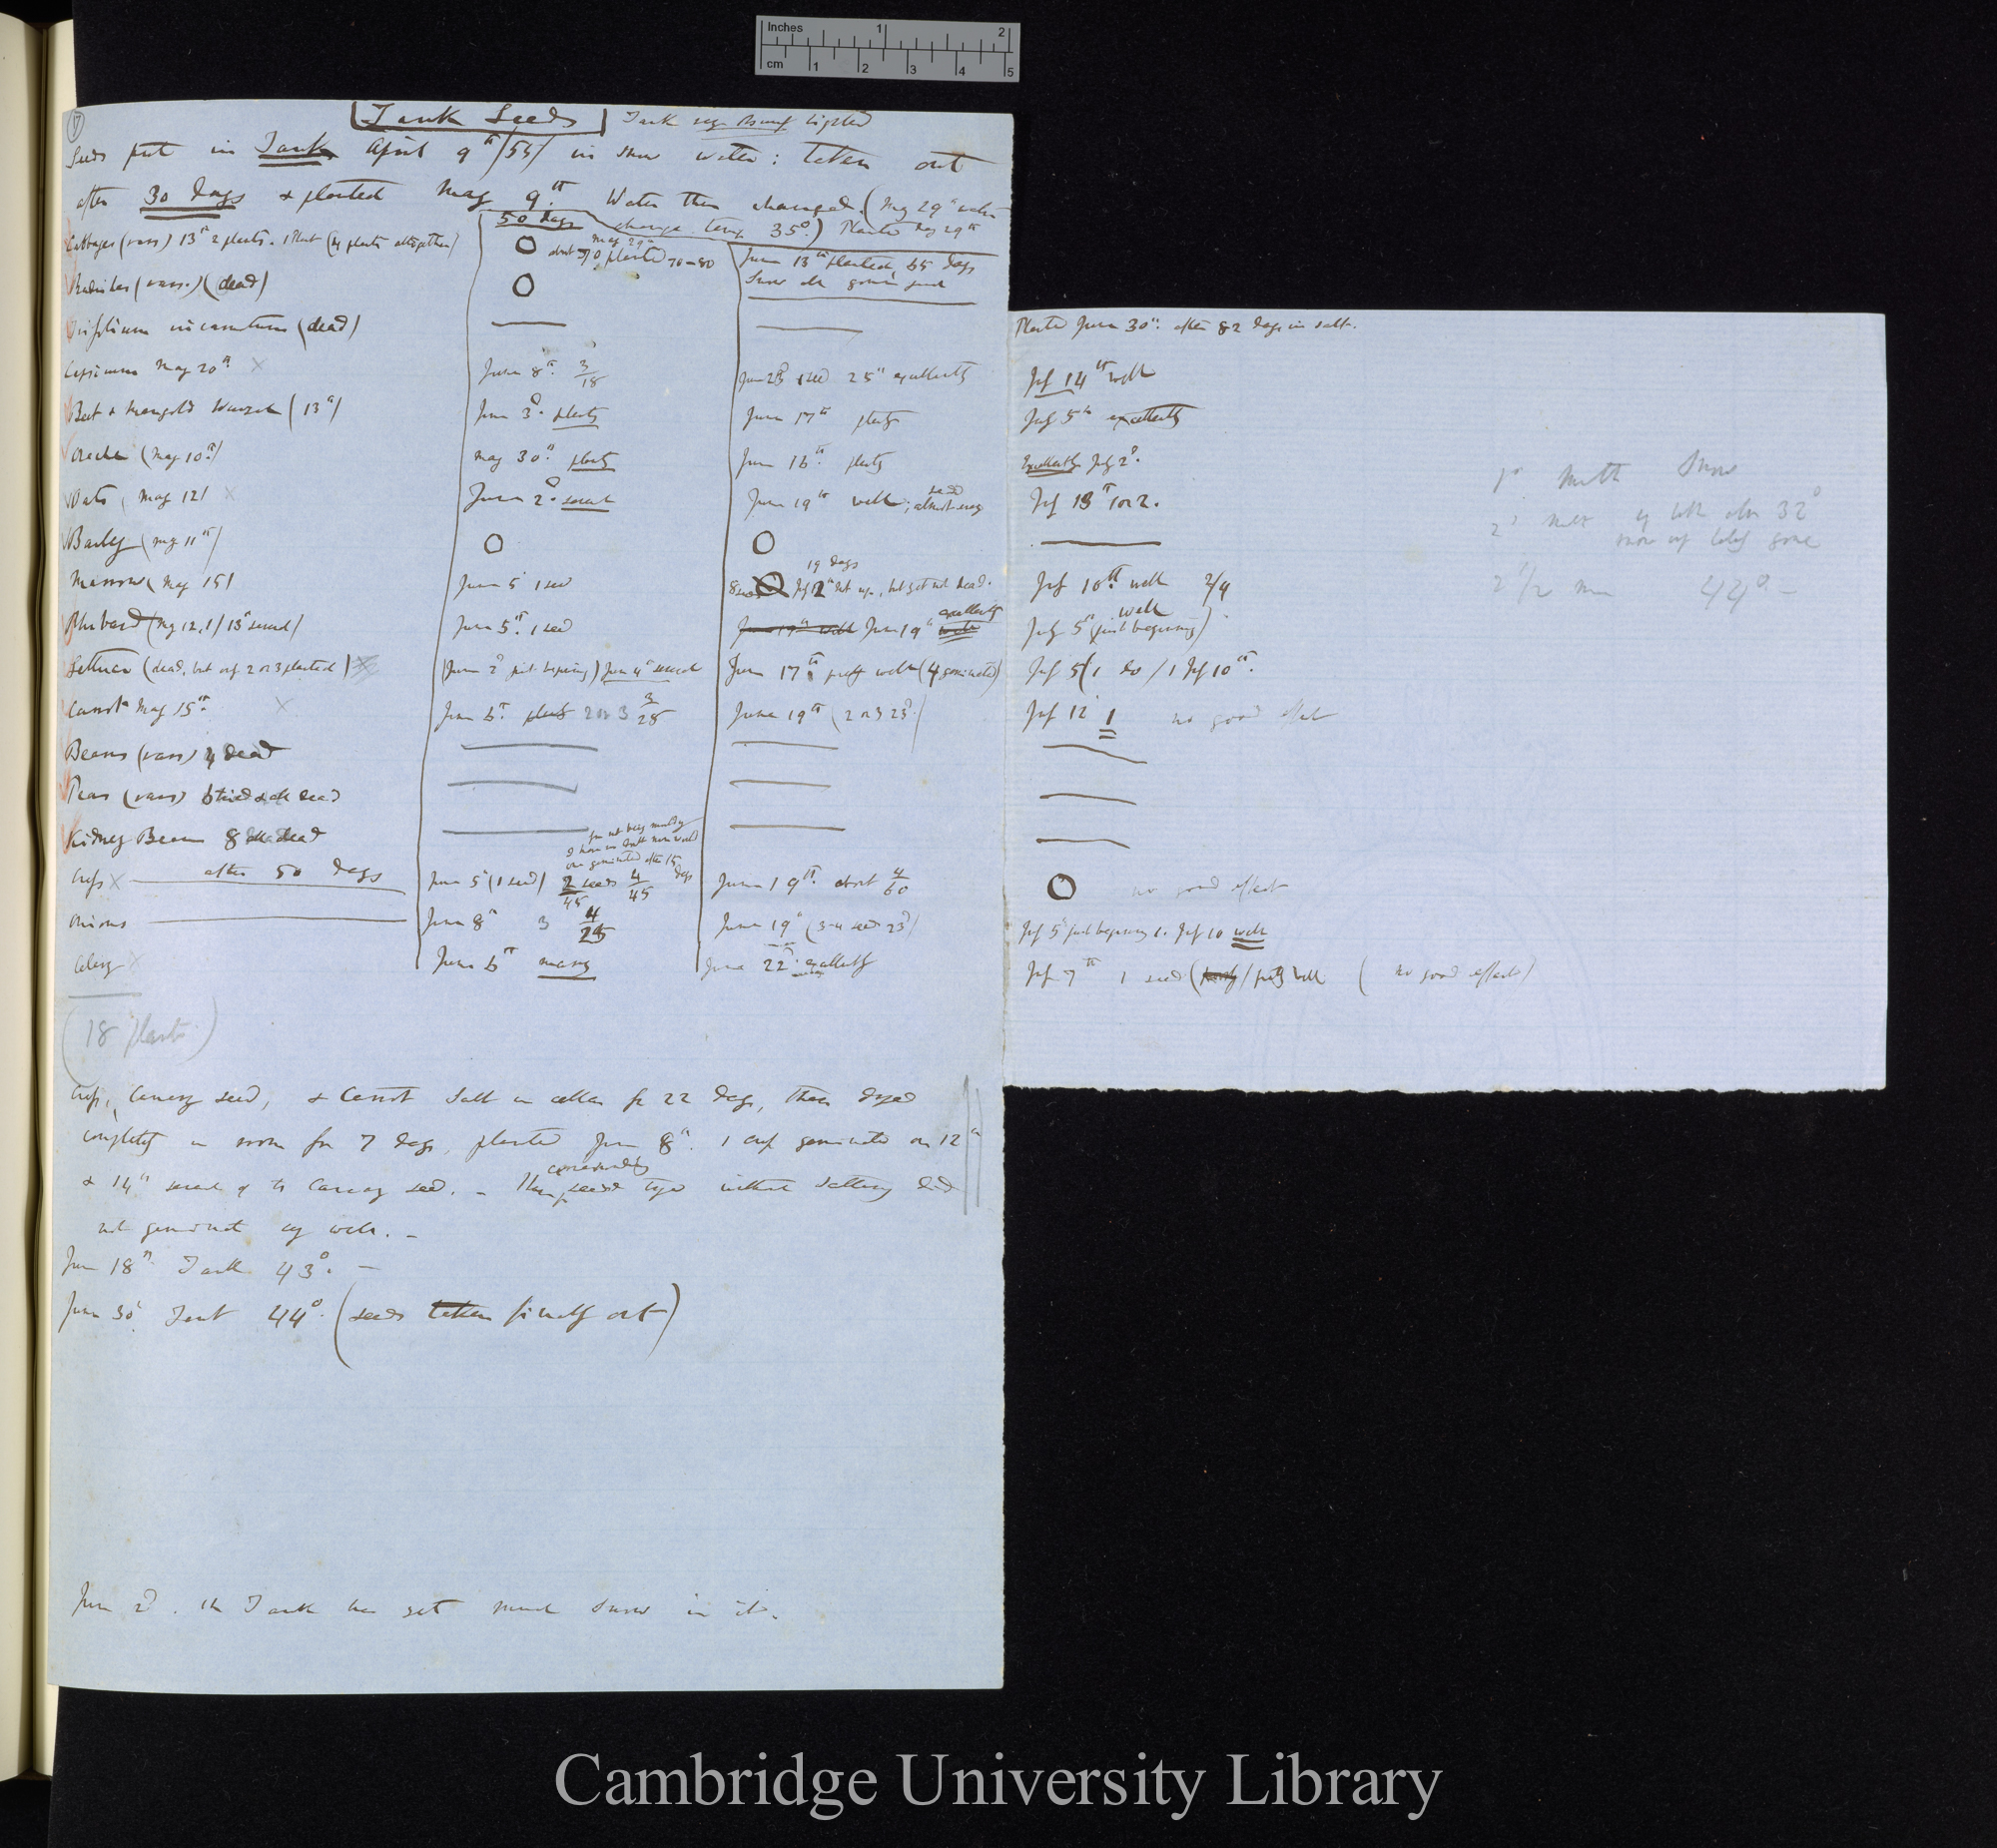 Inches 1 2
cm 1 2 3 4 5
Tank Seeds
Seeds put in Tank April 9th/55/ in snow water: taken out
after 30 days & planted May 9th. Water then changed. (May 29th water
change temp 35°.) Planted May 29th
50 days
May 29th
about planted 70-80
June 13th planted, 65 days
Snow all gone
Planted June 30th. after 82 days in salt.
Cabbages (vars) 13th 2 plants. 1 Plant (4 plants altogether) O
Radishes (vars.) (dead) O
Trifolium incarnatum (dead)
Capsicum May 20th x June 8th. 3/18 June 23d 1 seed 25th excellently July 14th well
Beet & Mangold Wurzel (13th) June 3d. plenty June 17th plenty July 5th excellently
Orache (May 10th) May 30th. plenty June 16th. plenty Excellently July 2d.
Oats (May 12) x June 2d. several June 19th well; almost every seed July 13th 1 or 2.
Barley (May 11th) O O
Marrow (May 15) June 5 1 seed 19 days not up, but yet not dead. July 10th. well 2/4
Rhubard (May 12, 1/13th several) June 5th. 1 seed June 19th well June 19th excellently well July 5th (just beginning) well
Lettuce (dead, but only 2 or 3 planted) x (June 2d just beginning) June 4th several June 17th pretty well (4 germinated) July 5 (1 do / 1 July 10th.
Carrot May 15th. x June 6th. plenty 2 or 3 3/25 June 19th (2 or 3 23d.) July 12 1 no good effect
Beans (vars) 4 dead
Peas (vars) 6 tried & all dead
Kidney Bean 8 dead
one germinated after 15 days
Cress x after 50 days June 5 (1 seed) 2 seeds/45 4/45 June 19th. about 4/60 O no good effect
Onions June 8th 3 4/25 June 19th (3-4 seeds 23d) July 5 just beginning 1. July 10 well
Celery x June 6th many June 22d. excellently July 7th 1 seed (pretty well (no good effect)
(18 plants)
1st melt Snow
2d 32°
snow only lately gone
2 1/2 44° -
Cress, Canary seed, & Carrot Salt in cellar for 22 days, then dryed
completely in room for 7 days, planted June 8th. 1 cress germinated on 12th
& 14th several of the Canary seed. - These corresponding seeds tryed without salting did
not germinate very well. -
June 18th Tank 43°. -
June 30 Tank 44°. (seeds taken finally out)
June 2d. the Tank has yet much snow in it.
Cambridge University Library